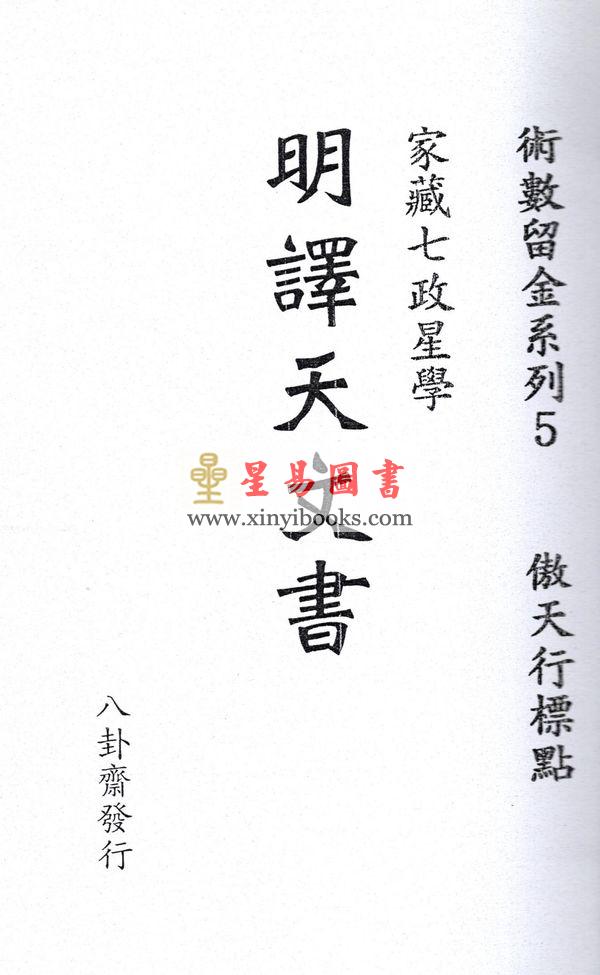 術數留金系列5 傲天行標點
家藏七政星學
明譯天文書
星易圖書
www.xinyibooks.com
八卦齋發行